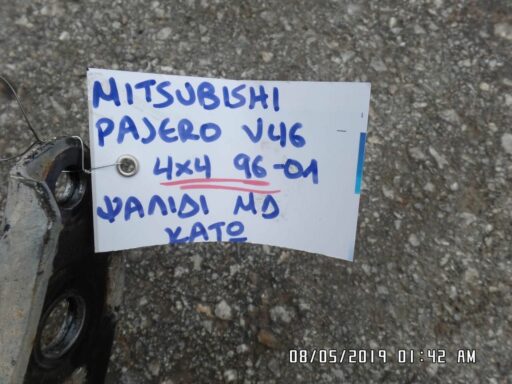 MITSUBISHI
PAJERO V46
4x4 96-01
ΨΑΛΙΔΙ ΜΔ
ΚΑΤΩ
08/05/2019 01:42 AM